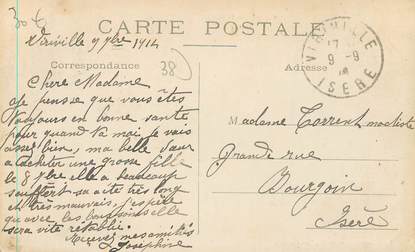 30 €
CARTE POSTALE
Viriville 9 7bre 1914
Correspondance
38
Adresse
VIRIVILLE
9 - 9
ISERE
Chère Madame
Je pense que vous êtes
toujours en bonne santé
pour quand à moi je vais
assez bien, ma belle sœur
a acheter une grosse fille
le 8 7bre elle a beaucoup
souffert sa a été très long
et très mauvais, j'espère
qu'avec les bons soins elle
sera vite rétablie.
Recevez mes amitiés
Joséphine
Madame Torrent modiste
Grande rue
Bourgoin
Isère